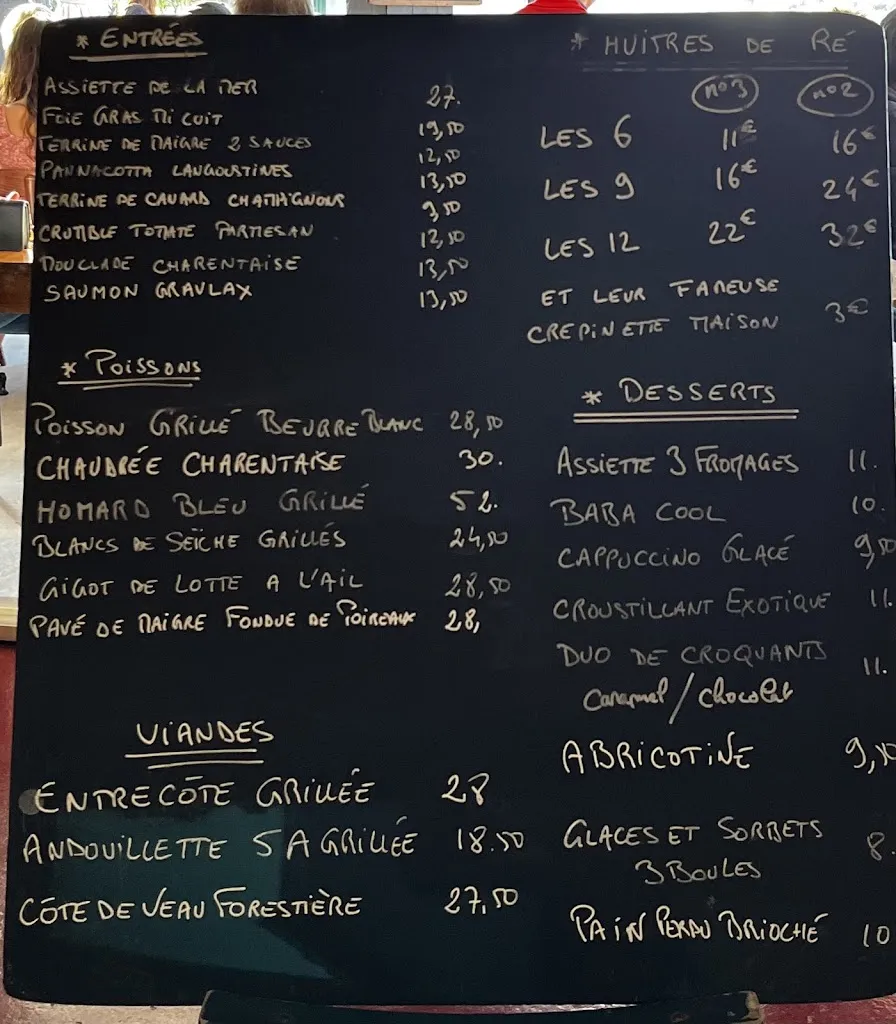 * ENTRÉES
ASSIETTE DE LA MER 27.
FOIE GRAS MI CUIT 19,50
TERRINE DE MAIGRE 2 SAUCES 12,50
PANNACOTTA LANGOUSTINES 13,50
TERRINE DE CANARD CHAMPIGNONS 9,50
CRUMBLE TOMATE PARMESAN 12,50
MOUCLADE CHARENTAISE 13,50
SAUMON GRAVLAX 13,50
* POISSONS
POISSON GRILLÉ BEURRE BLANC 28,50
CHAUDRÉE CHARENTAISE 30.
HOMARD BLEU GRILLÉ 52.
BLANCS DE SEÎCHE GRILLÉS 24,50
GIGOT DE LOTTE A L'AIL 28,50
PAVÉ DE MAIGRE FONDUE DE POIREAUX 28,
VIANDES
ENTRECÔTE GRILLÉE 28
ANDOUILLETTE 5 A GRILLÉE 18.50
CÔTE DE VEAU FORESTIÈRE 27,50
* HUITRES DE RÉ
n°3 n°2
LES 6 11€ 16€
LES 9 16€ 24€
LES 12 22€ 32€
ET LEUR FAMEUSE
CREPINETTE MAISON 3€
* DESSERTS
ASSIETTE 3 FROMAGES 11.
BABA COOL 10.
CAPPUCCINO GLACÉ 9,50
CROUSTILLANT EXOTIQUE 11.
DUO DE CROQUANTS 11.
Caramel / chocolat
ABRICOTINE 9,50
GLACES ET SORBETS 8.
3 BOULES
PAIN PERDU BRIOCHÉ 10